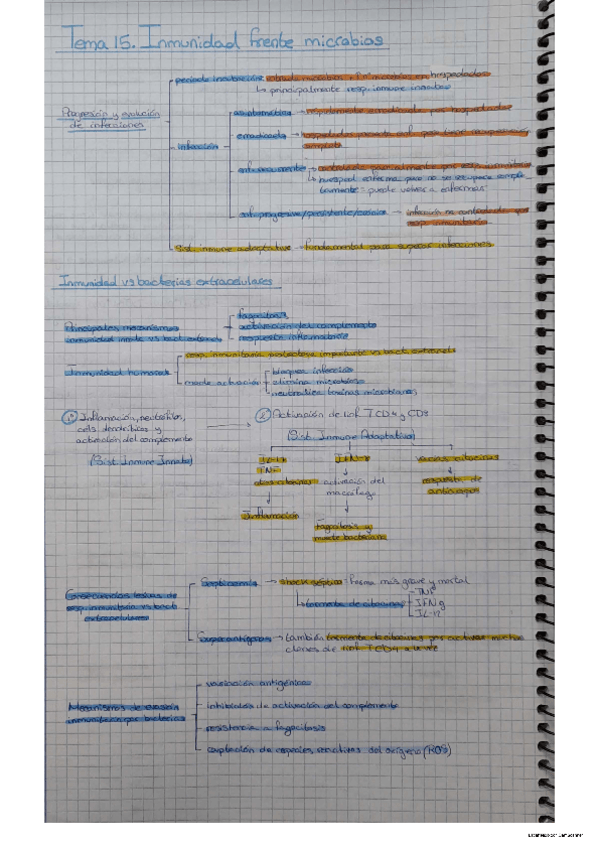 Tema 15. Inmunidad frente microbios
Progresión y evolución
de infecciones
periodo incubación: entrada microbios + en hospedador
↳ principalmente resp. inmune innata
infección
asintomática → rápidamente erradicada por hospedador
erradicada → hospedador presenta enf. pero tiene recuperación
completa
→ controlada parcialmente por resp. inmunitaria
↳ huésped enferma pero no se recupera comple_
tamente - puede volver a enfermar
enf. progresiva/persistente/crónica → infección no controlada por
resp. inmunitaria
Sist. inmune adaptativo - fundamental para superar infecciones
Inmunidad vs bacterias extracelulares
Principales mecanismos
inmunidad innata vs bact. extracels
fagocitosis
activación del complemento
respuesta inflamatoria
Inmunidad humoral
resp. inmunitaria protectora importante vs bact. extracels
modo actuación
bloquea infección
elimina microbios
neutraliza toxinas microbianas
1º Inflamación, neutrófilos,
cels. dendríticas y
activación del complemento
(Sist. Inmune Innato)
2º Activación de linf. TCD4 y CD8
(Sist. Inmune Adaptativo)
IL-17
TNF
otras citocinas
Inflamación
IFN-γ
activación del
macrófago
Fagocitosis y
muerte bacteriana
varias citocinas
respuesta de
anticuerpos
Consecuencias lesivas de
resp. inmunitaria vs bact.
extracelulares
Septicemia → shock séptico - forma más grave y mortal
↳ tormenta de citocinas
- TNF
- IFNg
- IL-12
Superantígenos → también tormenta de citocinas por activar muchos
clones de linf. TCD4 a la vez
Mecanismos de evasión
inmunitaria por bacterias
variación antigénica
inhibición de activación del complemento
resistencia a fagocitosis
captación de especies reactivas del oxígeno (ROS)